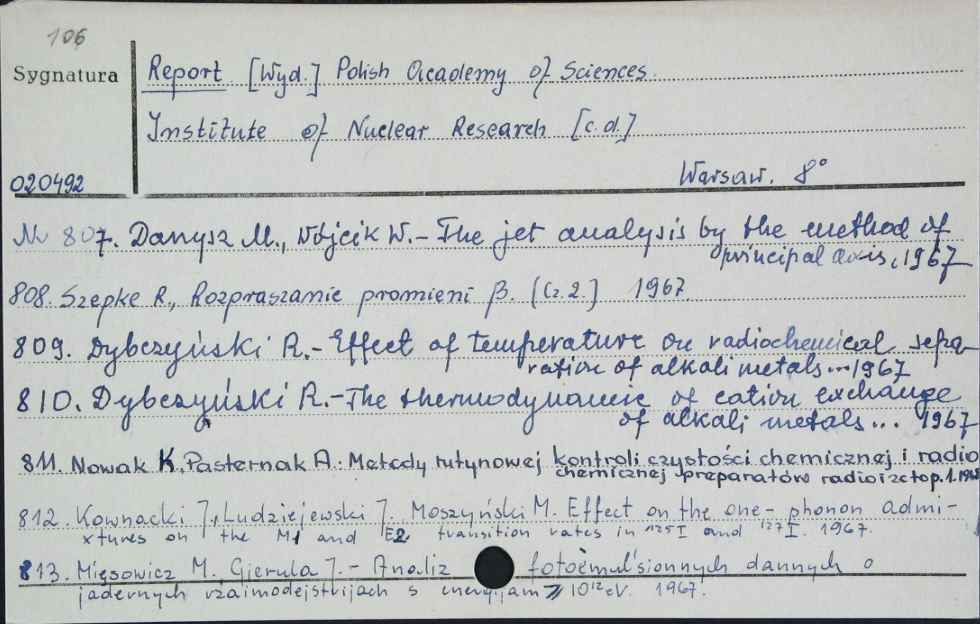 106
Sygnatura
Report [Wyd.] Polish Academy of Sciences.
Institute of Nuclear Research [c.d.]
020492
Warsaw. 8°
Nr 807. Danysz M., Wójcik W. - The jet analysis by the method of
principal axis, 1967
808. Szepke R., Rozpraszanie promieni β. [Cz. 2.] 1967.
809. Dybczyński R. - Effect of temperature on radiochemical sepa-
ration of alkali metals ... 1967
810. Dybczyński R. - The thermodynamic of cation exchange
of alkali metals... 1967
811. Nowak K., Pasternak A.: Metody rutynowej kontroli czystości chemicznej i radio
chemicznej preparatów radioizotop. 1.
812. Kownacki J., Ludziejewski J. Moszyński M. Effect on the one-phonon admi-
xtures on the M1 and E2 transition rates in 125I and 127I. 1967.
813. Mięsowicz M. Gierula J. - Analiz fotoèmul'sionnych dannych o
jadernych vzaimodejstvijach s energijam ⩾ 10¹² eV. 1967.